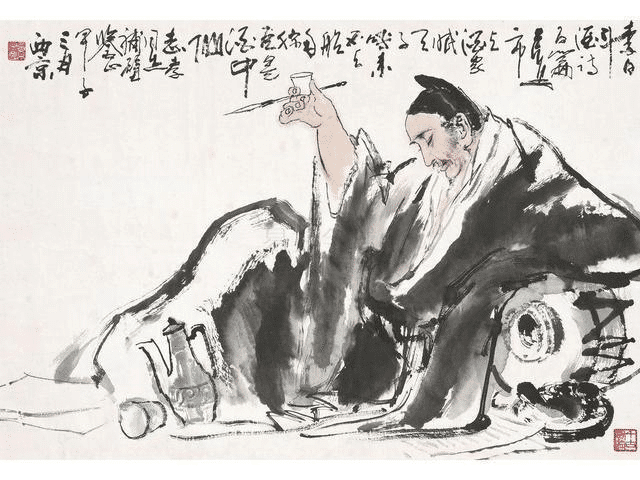 李白
斗酒诗
百篇
长安
市
上
酒家
眠
天
子
呼来
不上
船
自
称
臣是
酒中
仙
志孝
同志
补壁
甲子
三月
西京